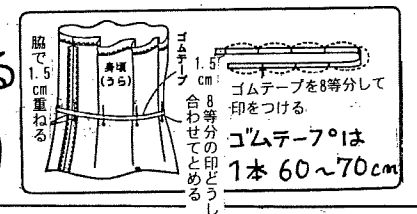 脇で1.5cm重ねる
身頃(うら)
ゴムテープ
1.5cm
8等分の印どうし
合わせてとめる
ゴムテープを8等分して
印をつける
ゴムテープは
1本 60〜70cm